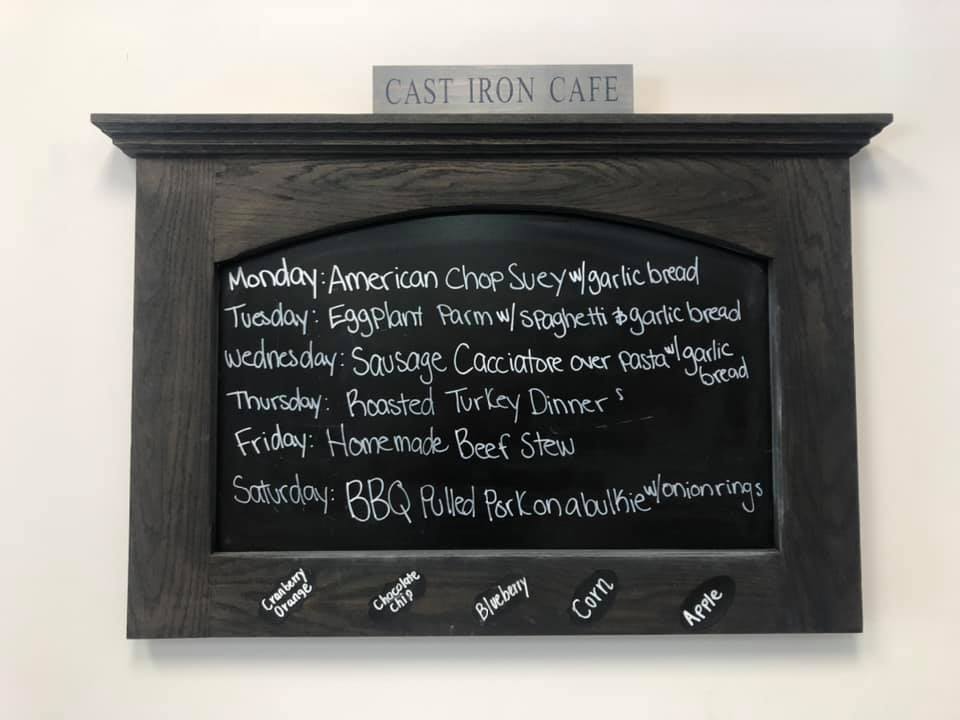 CAST IRON CAFE
Monday: American Chop Suey w/garlic bread
Tuesday: Eggplant Parm w/ spaghetti & garlic bread
Wednesday: Sausage Cacciatore over pasta w/ garlic
bread
Thursday: Roasted Turkey Dinner s
Friday: Homemade Beef Stew
Saturday: BBQ Pulled Pork on a bulkie w/onion rings
Cranberry
Orange
Chocolate
Chip
Blueberry
Corn
Apple